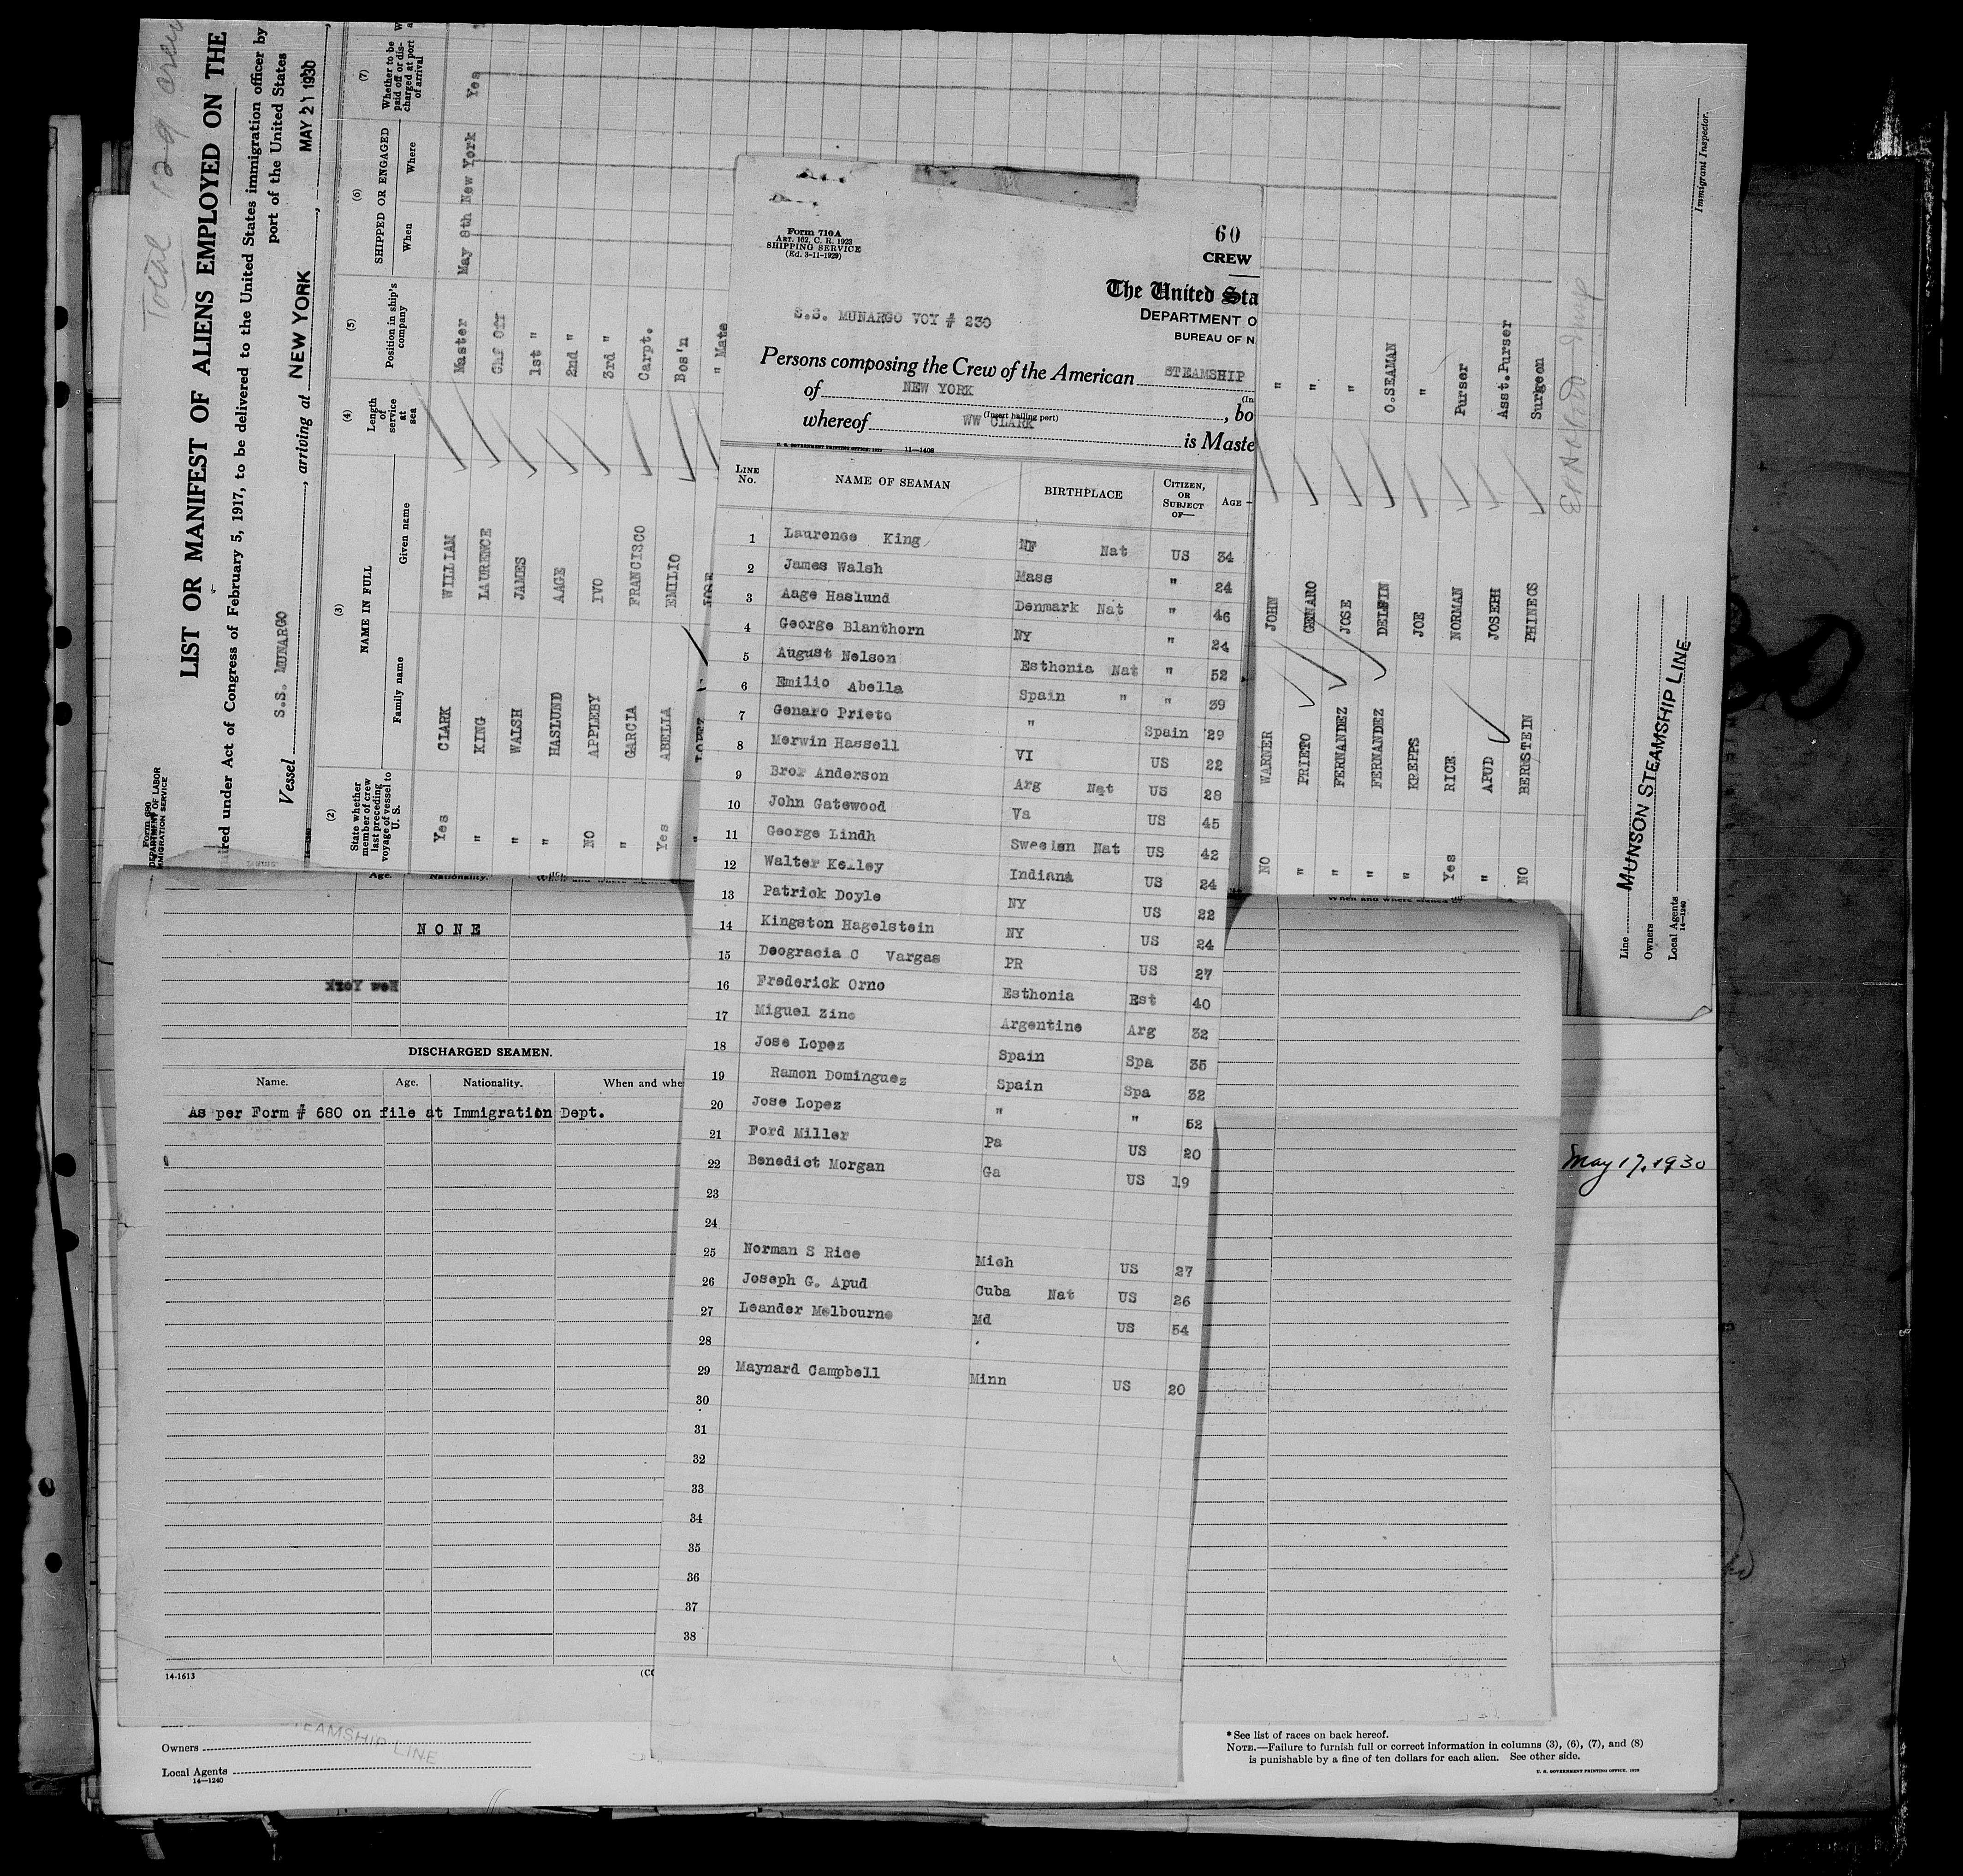 Total 129 crew
Form 680
DEPARTMENT OF LABOR
IMMIGRATION SERVICE
LIST OR MANIFEST OF ALIENS EMPLOYED ON THE
ired under Act of Congress of February 5, 1917, to be delivered to the United States immigration officer by
port of the United States
Vessel S.S. MUNARGO, arriving at NEW YORK, MAY 21 1930
(2) (3) (4) (5) (6) (7)
State whether member of crew last preceding voyage of vessel to U. S.
NAME IN FULL
Family name Given name
Length of service at sea
Position in ship's company
SHIPPED OR ENGAGED
When Where
Whether to be paid off or discharged at port of arrival
Yes CLARK WILLIAM Master May 8th New York Yes
" KING LAURENCE Chf Off
" WALSH JAMES 1st "
" HASLUND AAGE 2nd "
NO APPLEBY IVO 3rd "
" GARCIA FRANCISCO Carpt.
Yes ABELLA EMILIO Bos'n
" LOPEZ JOSE " Mate
NO WARNER JOHN "
" PRIETO GENARO "
" FERNANDEZ JOSE "
" FERNANDEZ DELFIN O.SEAMAN
" KREPPS JOE "
Yes RICE NORMAN Purser
" APUD JOSEPH Asst.Purser
NO BERNSTEIN PHINECS Surgeon
Immigrant Inspector.
Line MUNSON STEAMSHIP LINE
Owners
Local Agents
14—1240
Form 710A
ART. 162, C. R. 1923
SHIPPING SERVICE
(Ed. 3-11-1929)
60
CREW
The United Sta
DEPARTMENT O
BUREAU OF N
S.S. MUNARGO VOY # 230
Persons composing the Crew of the American STEAMSHIP
of NEW YORK , bo
(Insert hailing port)
(In
whereof WW CLARK is Maste
U. S. GOVERNMENT PRINTING OFFICE: 1929 11—1408
LINE No. NAME OF SEAMAN BIRTHPLACE CITIZEN, OR SUBJECT OF— AGE
1 Laurence King NF Nat US 34
2 James Walsh Mass " 24
3 Aage Haslund Denmark Nat " 46
4 George Blanthorn NY " 24
5 August Nelson Esthonia Nat " 52
6 Emilio Abella Spain " " 39
7 Genaro Prieto " Spain 29
8 Merwin Hassell VI US 22
9 Bror Anderson Arg Nat US 28
10 John Gatewood Va US 45
11 George Lindh Sweeden Nat US 42
12 Walter Kelley Indiana US 24
13 Patrick Doyle NY US 22
14 Kingston Hagelstein NY US 24
15 Deogracia C Vargas PR US 27
16 Frederick Orno Esthonia Est 40
17 Miguel Zino Argentine Arg 32
18 Jose Lopez Spain Spa 35
19 Ramon Dominguez Spain Spa 32
20 Jose Lopez " " 52
21 Ford Miller Pa US 20
22 Benedict Morgan Ga US 19
23
24
25 Norman S Rice Mich US 27
26 Joseph G. Apud Cuba Nat US 26
27 Leander Melbourne Md US 54
28
29 Maynard Campbell Minn US 20
30
31
32
33
34
35
36
37
38
Age. Nationality.
NONE
New York
DISCHARGED SEAMEN.
Name. Age. Nationality. When and whe
As per Form # 680 on file at Immigration Dept.
14-1613
May 17, 1930
STEAMSHIP LINE
Owners
Local Agents
14—1240
* See list of races on back hereof.
NOTE.—Failure to furnish full or correct information in columns (3), (6), (7), and (8)
is punishable by a fine of ten dollars for each alien. See other side.
U. S. GOVERNMENT PRINTING OFFICE: 1929